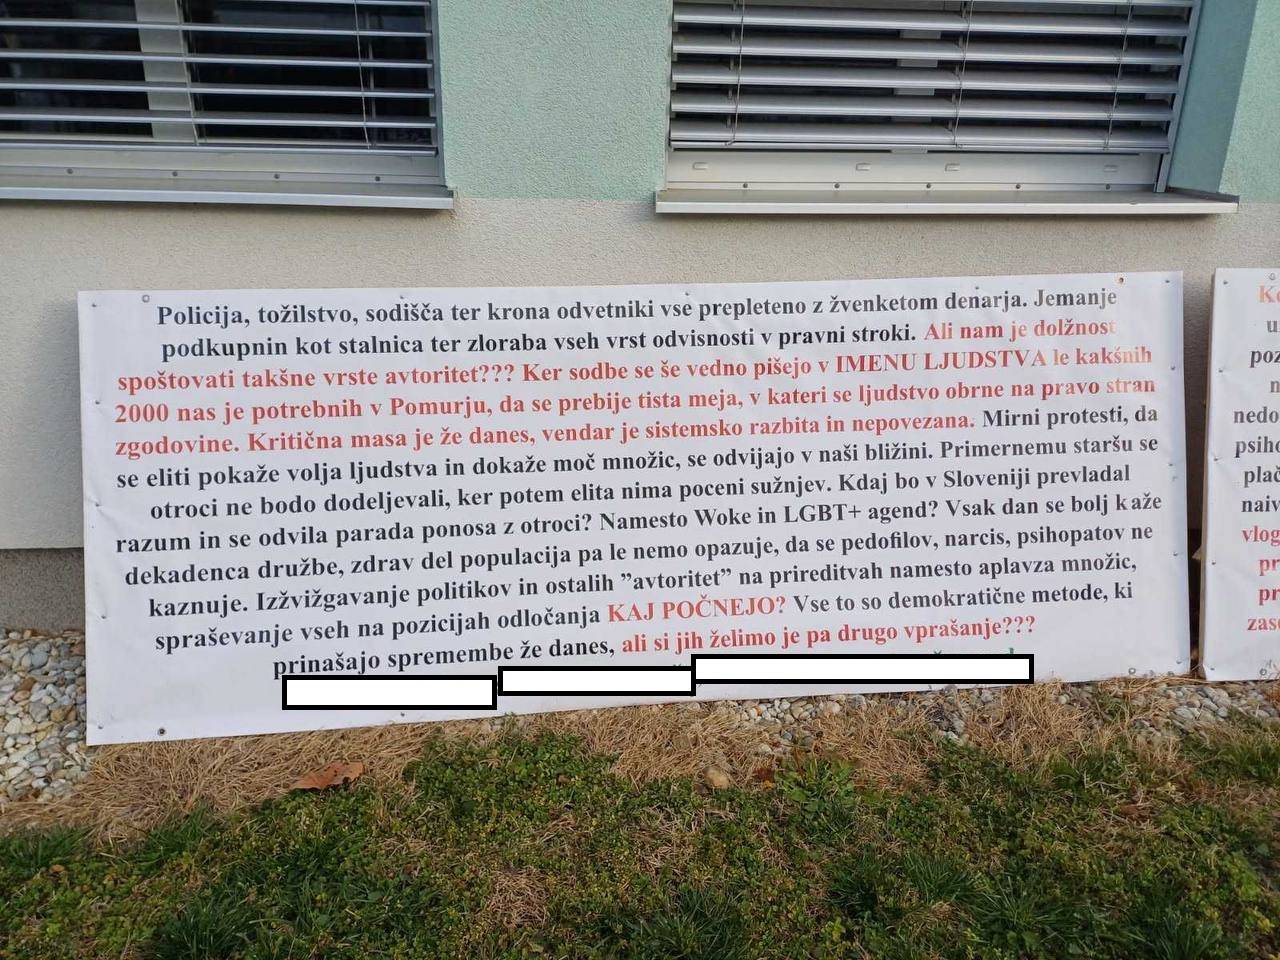 Policija, tožilstvo, sodišča ter krona odvetniki vse prepleteno z žvenketom denarja. Jemanje
podkupnin kot stalnica ter zloraba vseh vrst odvisnosti v pravni stroki. Ali nam je dolžnost
spoštovati takšne vrste avtoritet??? Ker sodbe se še vedno pišejo v IMENU LJUDSTVA le kakšnih
2000 nas je potrebnih v Pomurju, da se prebije tista meja, v kateri se ljudstvo obrne na pravo stran
zgodovine. Kritična masa je že danes, vendar je sistemsko razbita in nepovezana. Mirni protesti, da
se eliti pokaže volja ljudstva in dokaže moč množic, se odvijajo v naši bližini. Primernemu staršu se
otroci ne bodo dodeljevali, ker potem elita nima poceni sužnjev. Kdaj bo v Sloveniji prevladal
razum in se odvila parada ponosa z otroci? Namesto Woke in LGBT+ agend? Vsak dan se bolj kaže
dekadenca družbe, zdrav del populacija pa le nemo opazuje, da se pedofilov, narcis, psihopatov ne
kaznuje. Izžvižgavanje politikov in ostalih ”avtoritet” na prireditvah namesto aplavza množic,
spraševanje vseh na pozicijah odločanja KAJ POČNEJO? Vse to so demokratične metode, ki
prinašajo spremembe že danes, ali si jih želimo je pa drugo vprašanje???